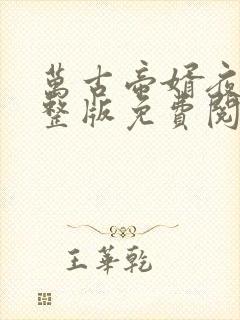 萬古帝婿夜
整版免費閱
王華乾